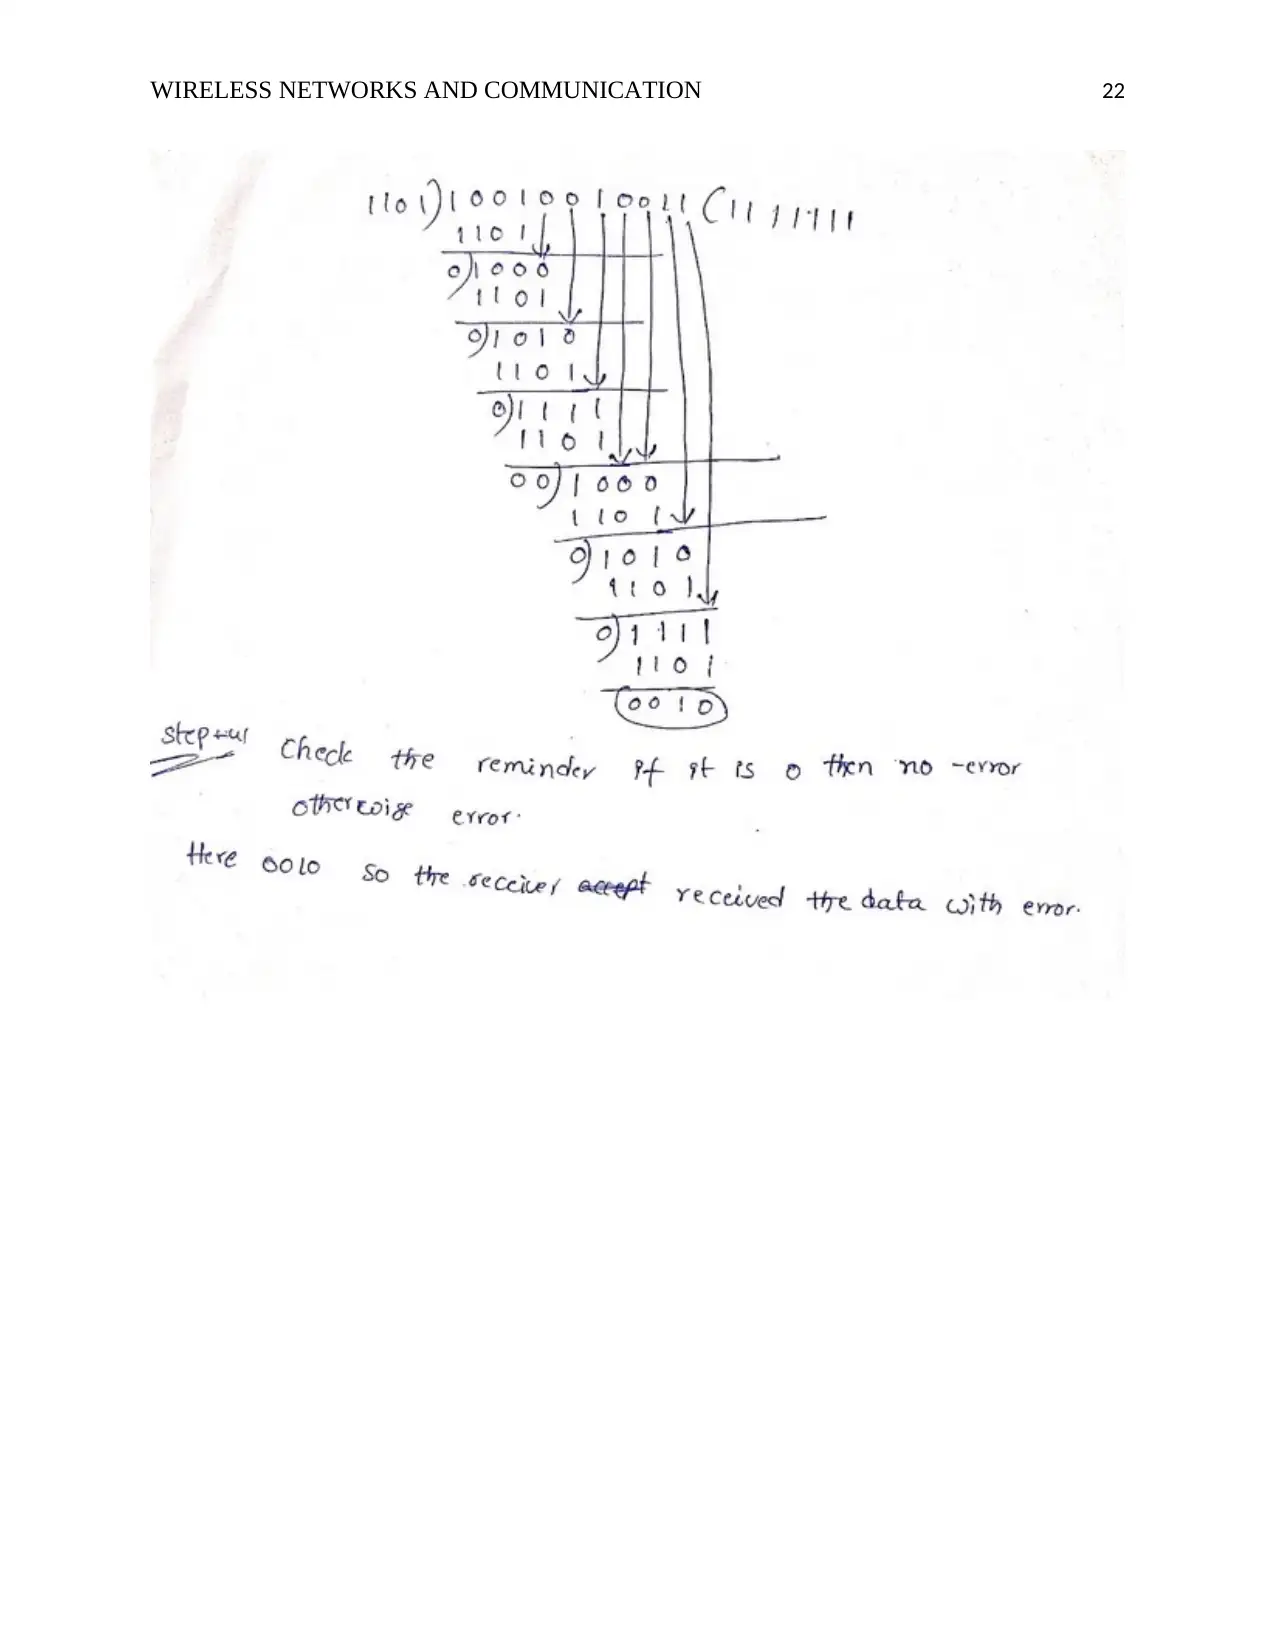 WIRELESS NETWORKS AND COMMUNICATION 22
1101)10010010011(11 11111
1101
0)1000
1101
0)1010
1101
0)1111
1101
00)1000
1101
0)1010
1101
0)1111
1101
0010
Check the reminder if it is 0 then no -error
otherwise error.
Here 0010 so the receiver accept received the data with error.